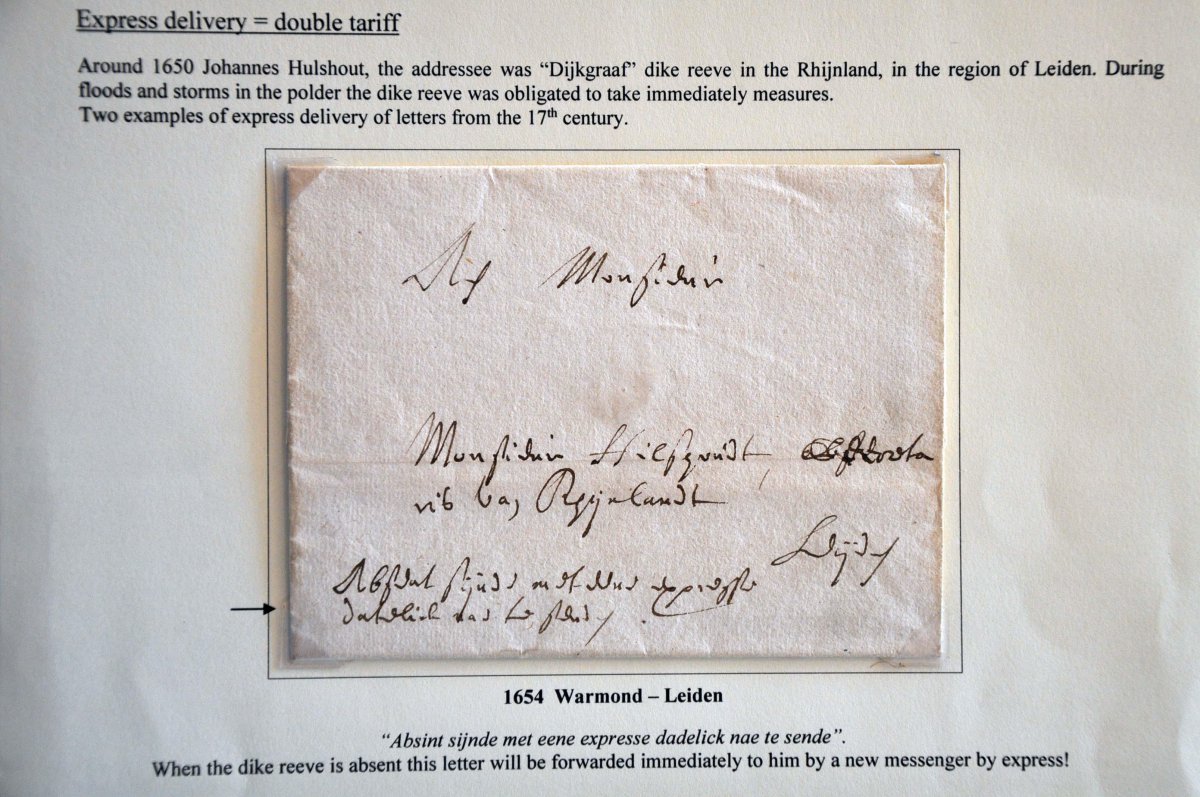 Express delivery = double tariff
Around 1650 Johannes Hulshout, the addressee was “Dijkgraaf” dike reeve in the Rhijnland, in the region of Leiden. During
floods and storms in the polder the dike reeve was obligated to take immediately measures.
Two examples of express delivery of letters from the 17th century.
Monsieur
Monsieur Hulshoudt,
van Rhijnlandt
Leijden
Absent sijnde met eene expresse
datelick nae te senden
1654 Warmond – Leiden
“Absint sijnde met eene expresse dadelick nae te sende”.
When the dike reeve is absent this letter will be forwarded immediately to him by a new messenger by express!